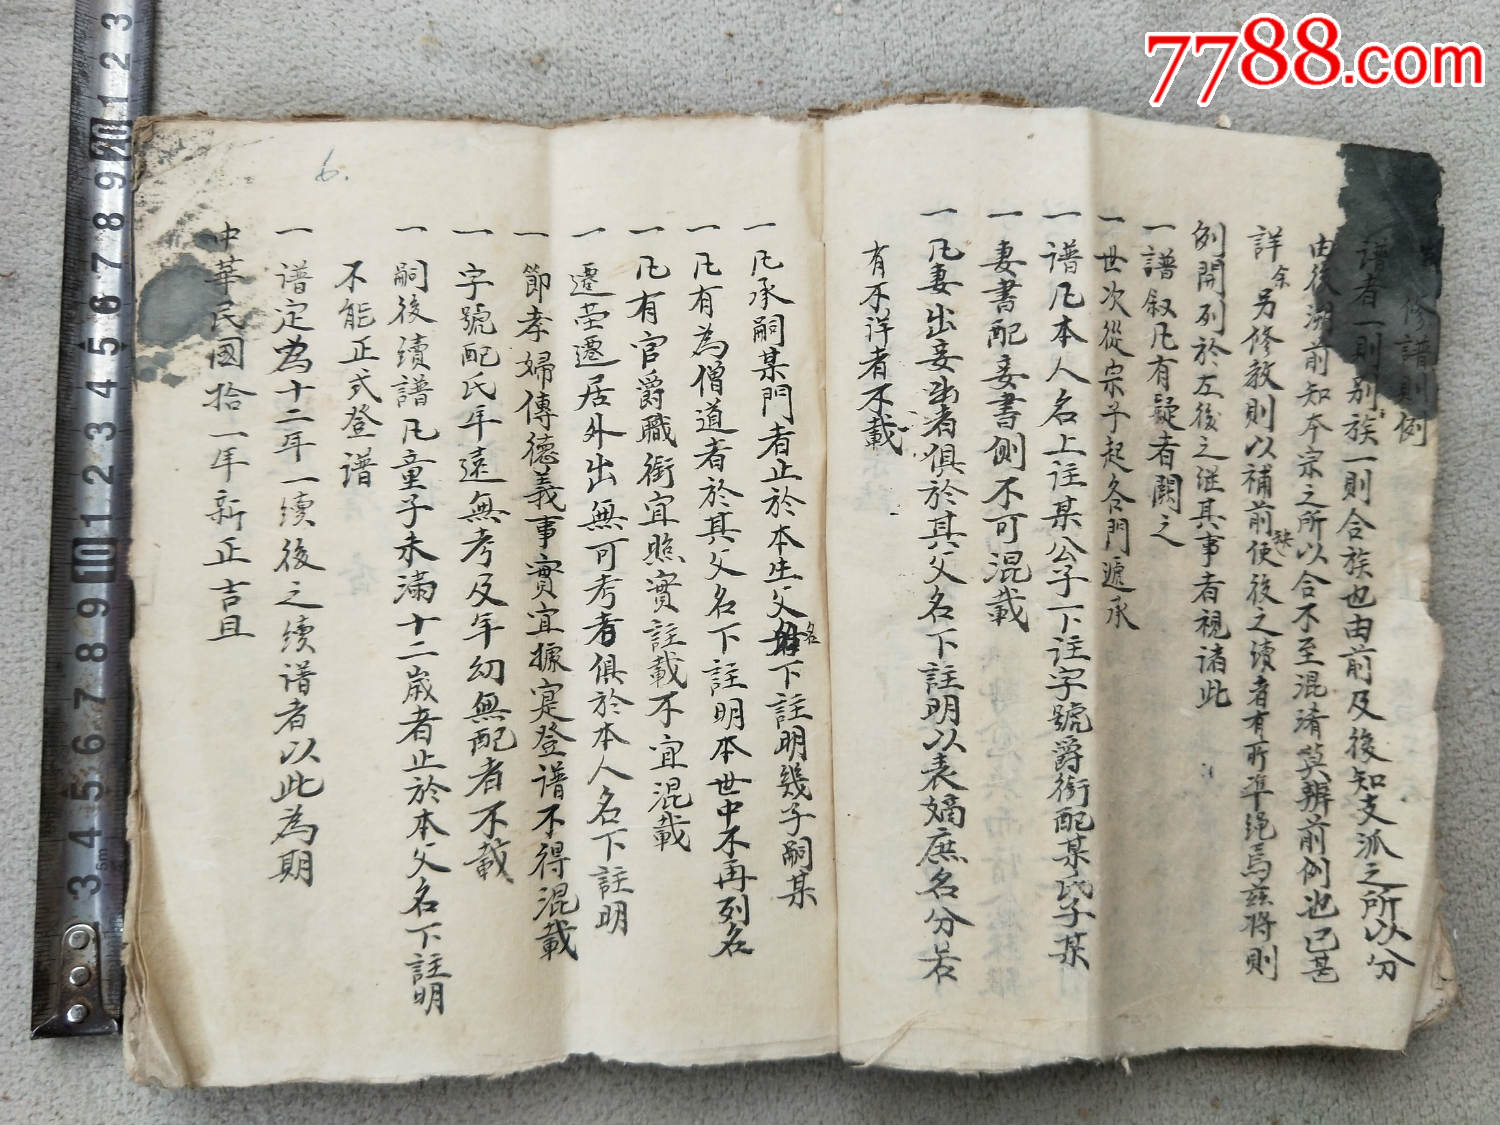 修譜則例
譜者一則別族一則合族也由前及後知支派之所以分
由後溯前知本宗之所以合不至混淆莫辨前例也已甚
詳余另修教則以補前缺使後之續者有所準绳焉兹將則
例開列於左後之继其事者視諸此
一譜叙凡有疑者闕之
一世次從宗子起各門遞承
一譜凡本人名上註某公子下註字號爵銜配某氏子某
一妻書配妾書側不可混載
一凡妻出妾出者俱於其父名下註明以表嫡庶名分若
有不許者不載
一凡承嗣某門者止於本生父名下註明幾子嗣某
一凡有為僧道者於其父名下註明本世中不再列名
一凡有官爵職銜宜照實註載不宜混載
一遷塋遷居外出無可考者俱於本人名下註明
一節孝婦傳德義事實宜據寔登谱不得混載
一字號配氏年遠無考及年幼無配者不載
一嗣後續譜凡童子未滿十二歲者止於本父名下註明
不能正式登譜
一谱定为十二年一續後之续谱者以此為期
中華民國拾一年新正吉旦
6.
7788.com
1 2 3 4 5 6 7 8 9 10 1 2 3 4 5 6 7 8 9 20 1 2 3